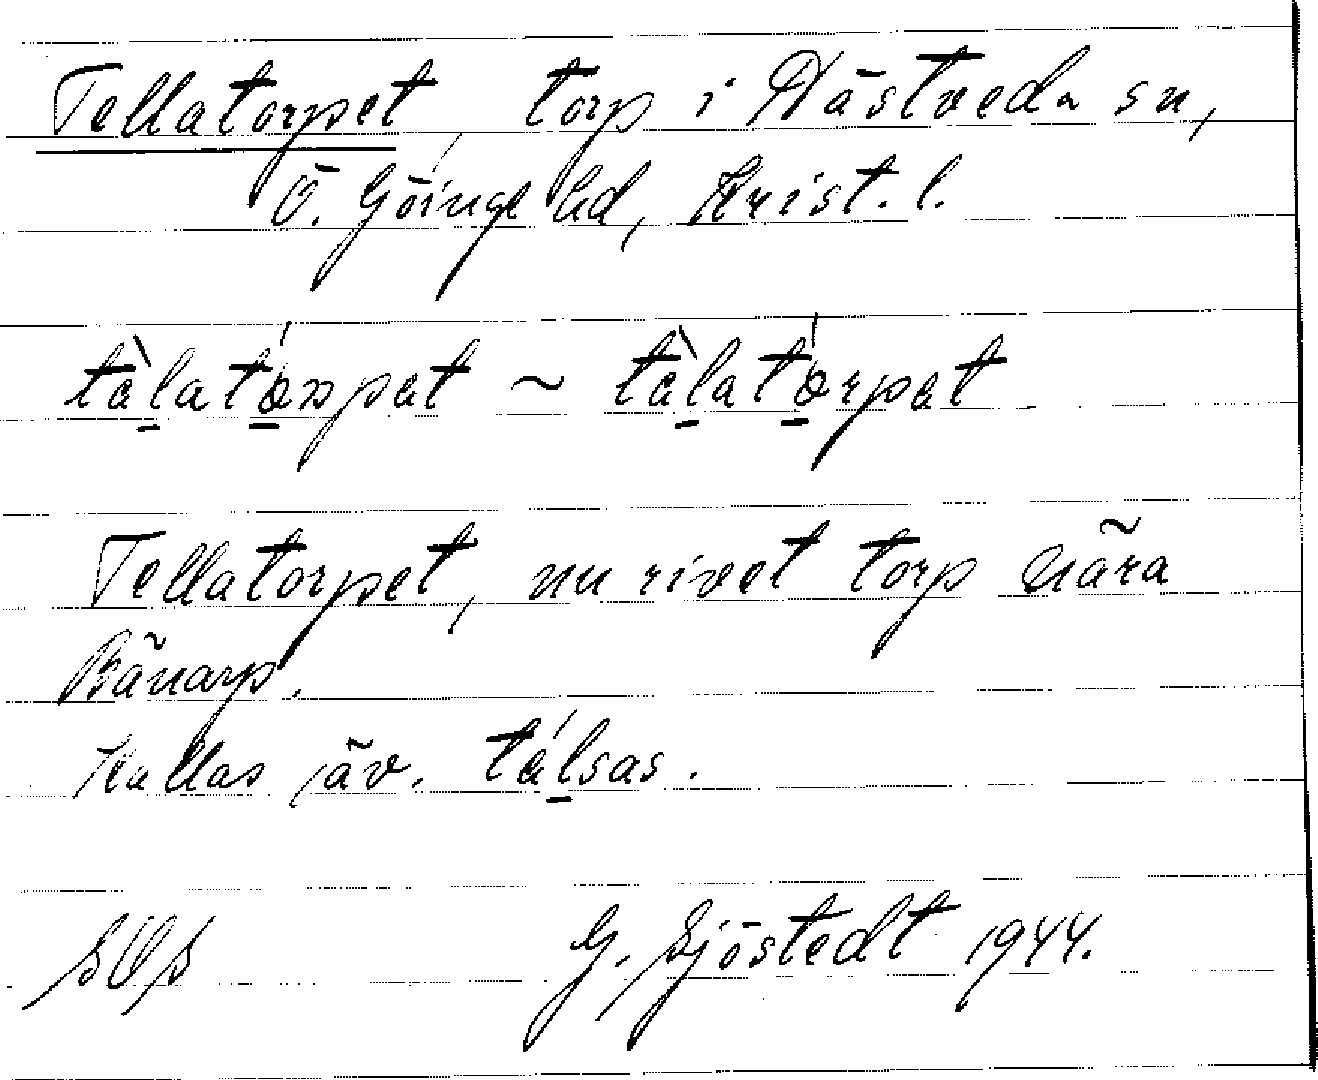 Tellatorpet, torp i Nästveda sn,
Ö. Göinge hd, Krist. l.
tèlatórpet ~ tèlatórpet
Tellatorpet, nu rivet torp nära
Bänarp.
Kallas äv. télsas.
SOS G. Sjöstedt 1944.